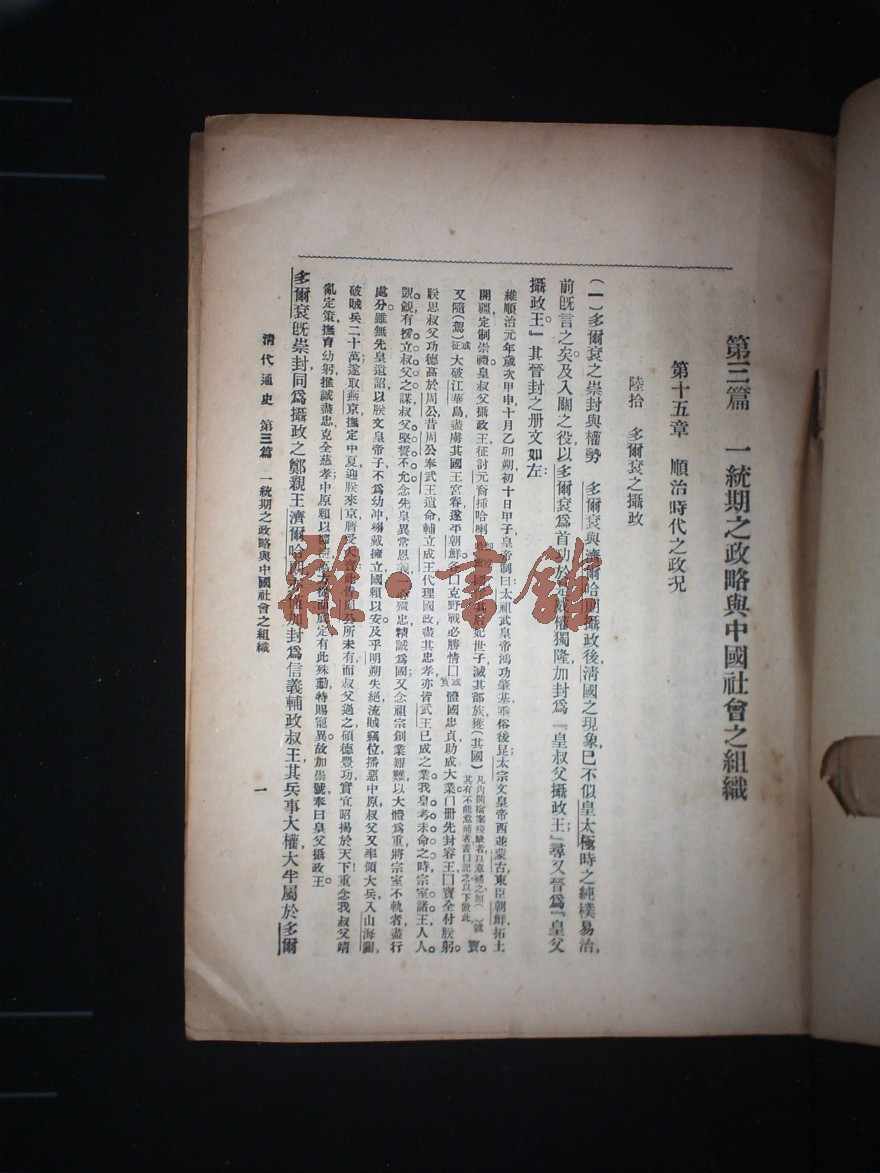 第三篇　一統期之政略與中國社會之組織
第十五章　順治時代之政況
陸拾　多爾袞之攝政
(一)多爾袞之崇封與權勢　多爾袞與濟爾哈朗攝政後,清國之現象,已不似皇太極時之純樸易治,
前既言之矣。及入關之役,以多爾袞爲首功,於是威權獨隆,加封爲『皇叔父攝政王』;尋又晉爲『皇父
攝政王。』其晉封之册文如左:
維順治元年歲次甲申,十月乙卯朔,初十日甲子,皇帝制曰:太祖武皇帝鴻功肇基,垂俗後昆,太宗文皇帝西並蒙古,東臣朝鮮,拓土
開疆,定制崇禮。皇叔父攝政王征討元裔插哈喇
后妃世子,滅其部族,獲(其國) 凡內閣檔案殘缺者,以意補之,加( )號其有不能意補者,書囗記之以下倣此 寶
又隨(駕)征 大破江華島,盡虜其國王宮眷,遂平朝鮮。各囗克野戰必勝,情囗 體國忠貞,助成大業。囗冊先封睿王囗寶,全付朕躬。
朕思叔父功德高於周公,昔周公奉武王遺命,輔立成王,代理國政,盡其忠孝,亦皆武王已成之業。我皇考未命之時,宗室諸王,人人
覬覦,有援立叔父之謀,叔父堅誓不允,念先皇異常恩義,一心殫忠,精誠爲國;又念祖宗創業艱難,以大體爲重,將宗室不軌者盡行
處分。雖無先皇遺詔,以朕文皇帝子,不爲幼冲,翊戴擁立,國賴以安。及乎明朔失絕,流賊竊位,播惡中原,叔父又率領大兵入山海關,
破賊兵二十萬,遂取燕京,撫定中夏,迎朕來京,膺受大寶。此皆周公所未有,而叔父過之。碩德豐功,實宜昭揭於天下!重念我叔父靖
亂定策,撫育幼躬,推誠盡忠,克全慈孝,中原賴以 咸定,有此殊勳,特賜寵異。故加崇號,奉曰皇父攝政王。
多爾袞既崇封,同爲攝政之鄭親王濟爾哈朗 加封爲信義輔政叔王,其兵事大權,大半屬於多爾
清代通史　第三篇　一統期之政略與中國社會之組織
一
雅·書館